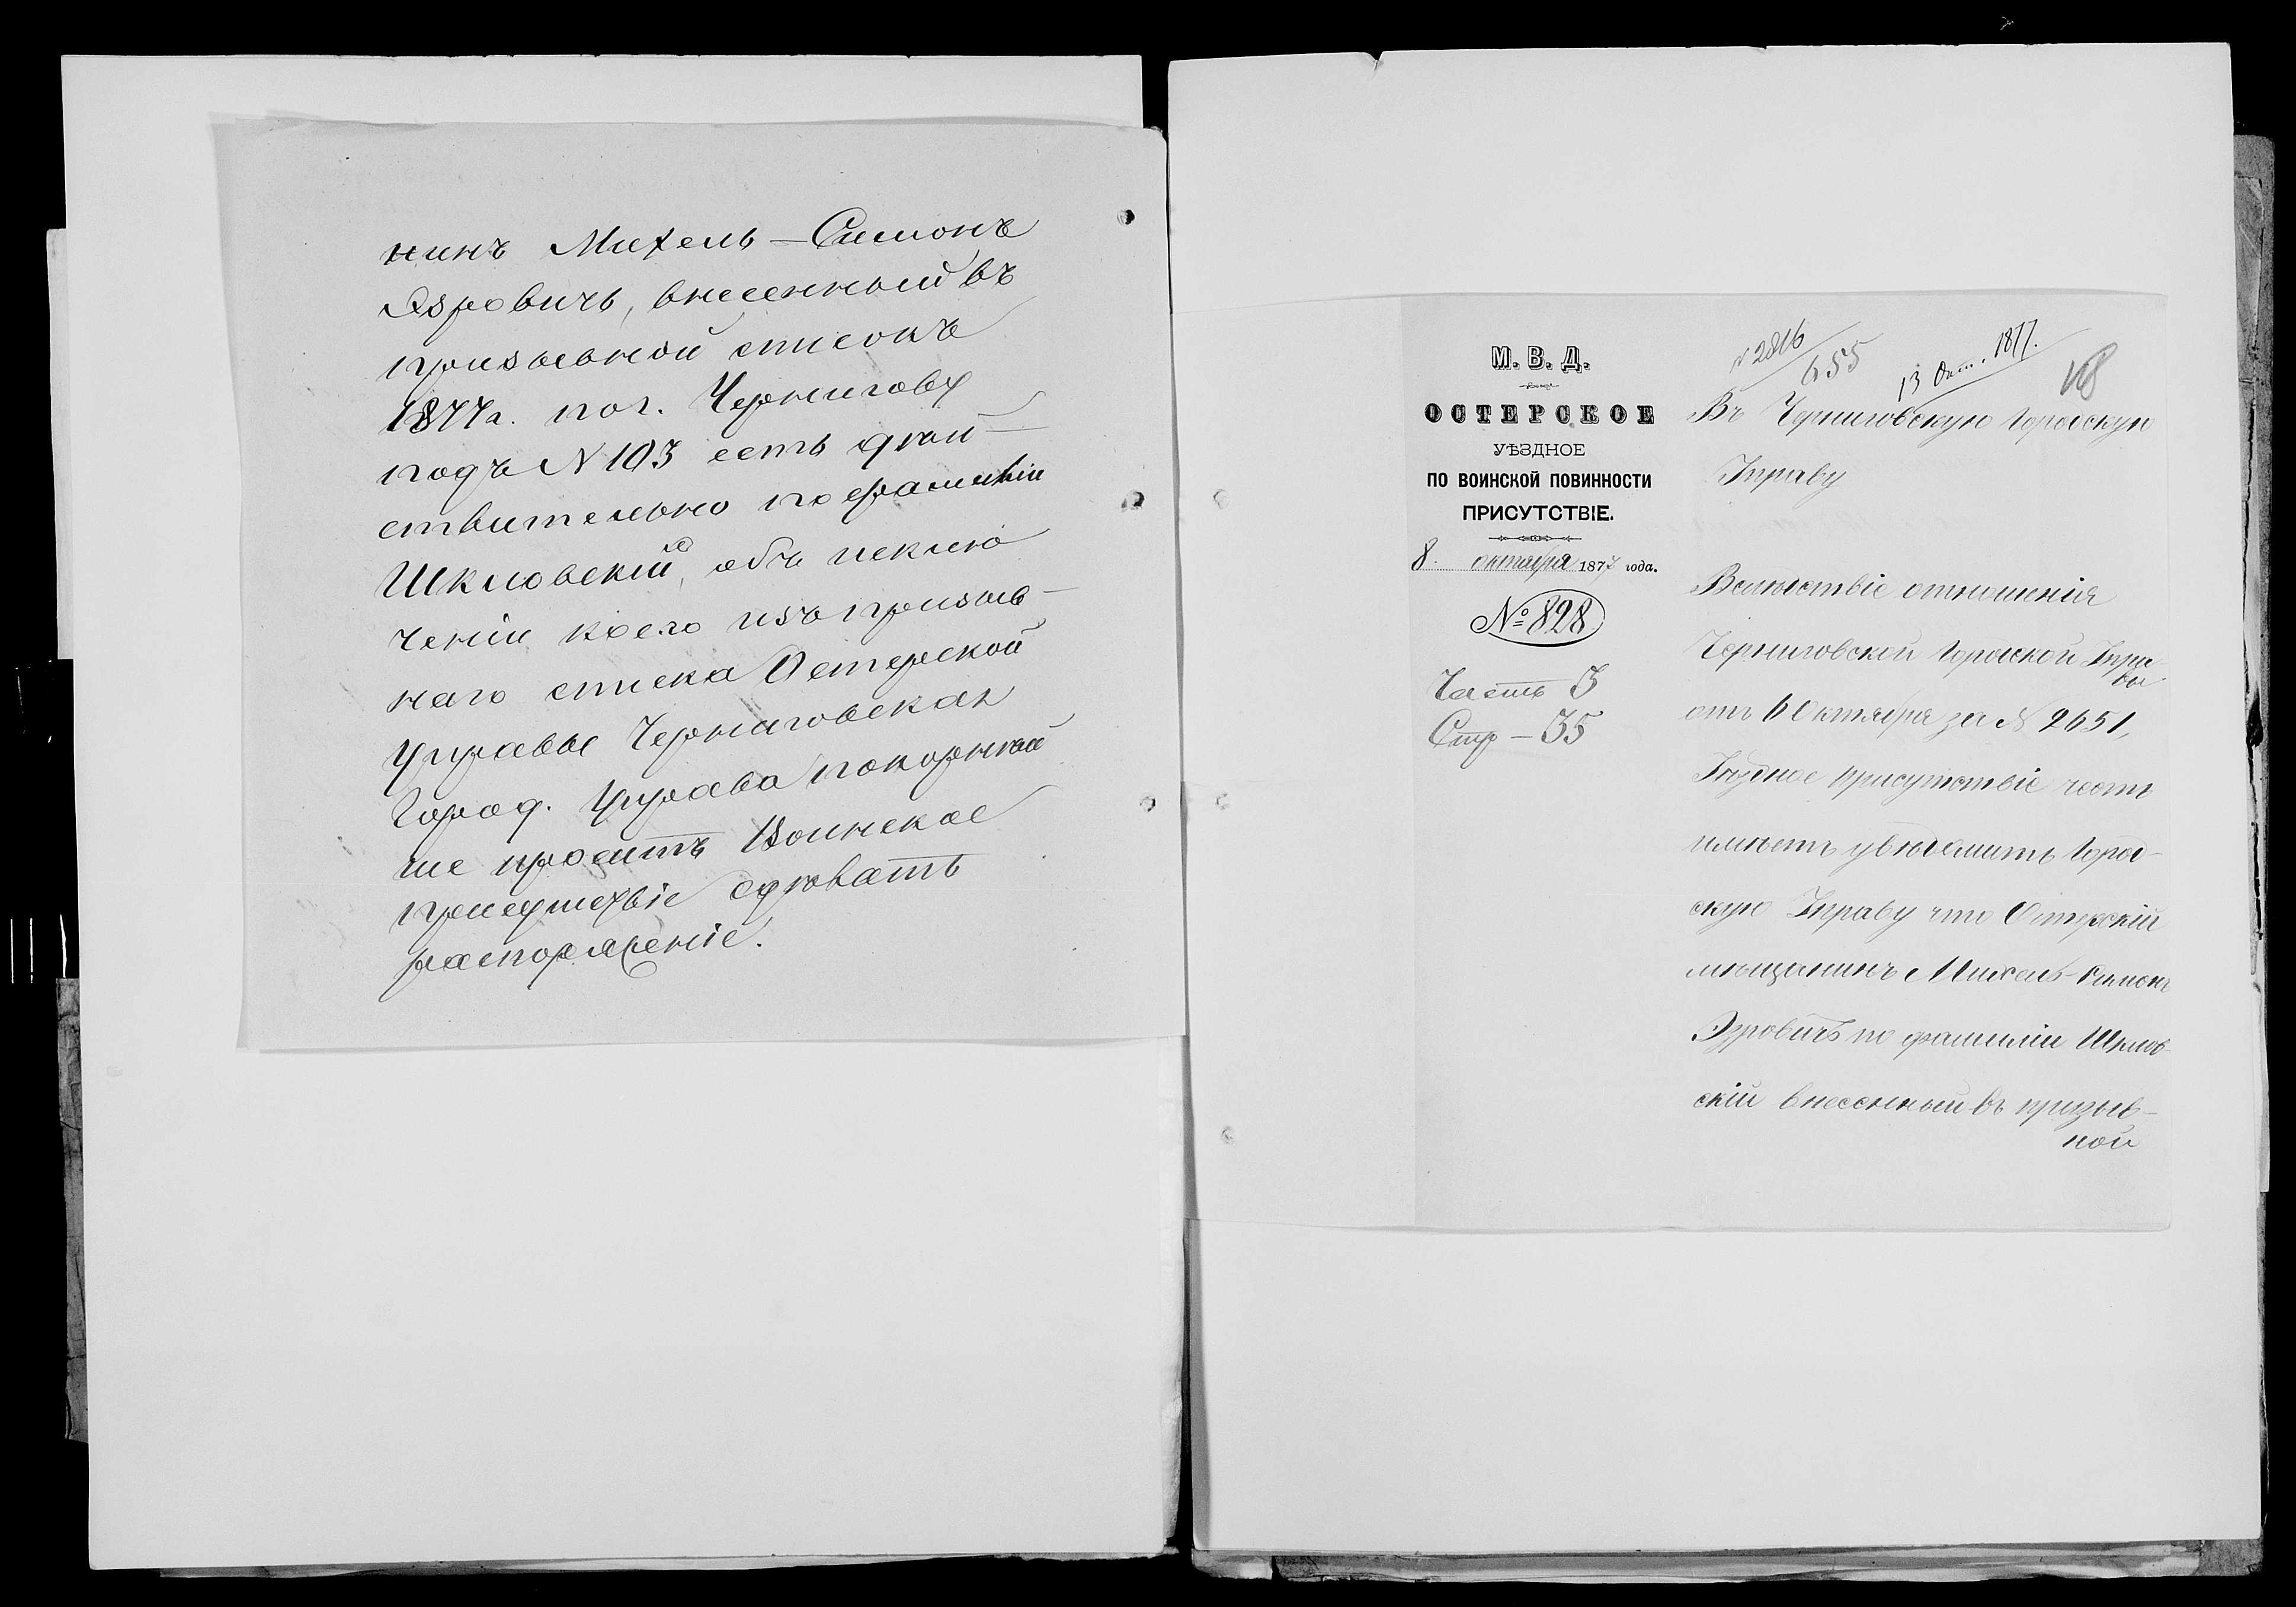 нинъ Михель-Симонъ
Эзровичъ, внесенный въ
призывной списокъ
1877 г. по г. Чернигову
подъ N 103 есть дѣй-
ствительно по фамиліи
Шкловскій, объ исклю
ченіи коего изъ призыв-
наго списка Остерской
Управы Черниговская
Город. Управа покорнѣй
ше проситъ Воинское
присутствіе сдѣлать
распоряженіе.
М. В. Д.
ОСТЕРСКОЕ
УѢЗДНОЕ
ПО ВОИНСКОЙ ПОВИННОСТИ
ПРИСУТСТВІЕ.
8 октября 1877 года.
№ 828
Часть 3
Стр - 35
N 2816
655
13 Окт. 1877.
Въ Черниговскую Городскую
Управу
Вслѣдствіе отношенія
Черниговской Городской Упра-
вы
отъ 6 Октября за N 2651,
Уѣздное присутствіе честь
имѣетъ увѣдомить Город-
скую Управу что Остерскій
мѣщанинъ Михель-Симонъ
Эзровичъ по фамиліи Шклов-
скій внесенный въ призыв-
ной